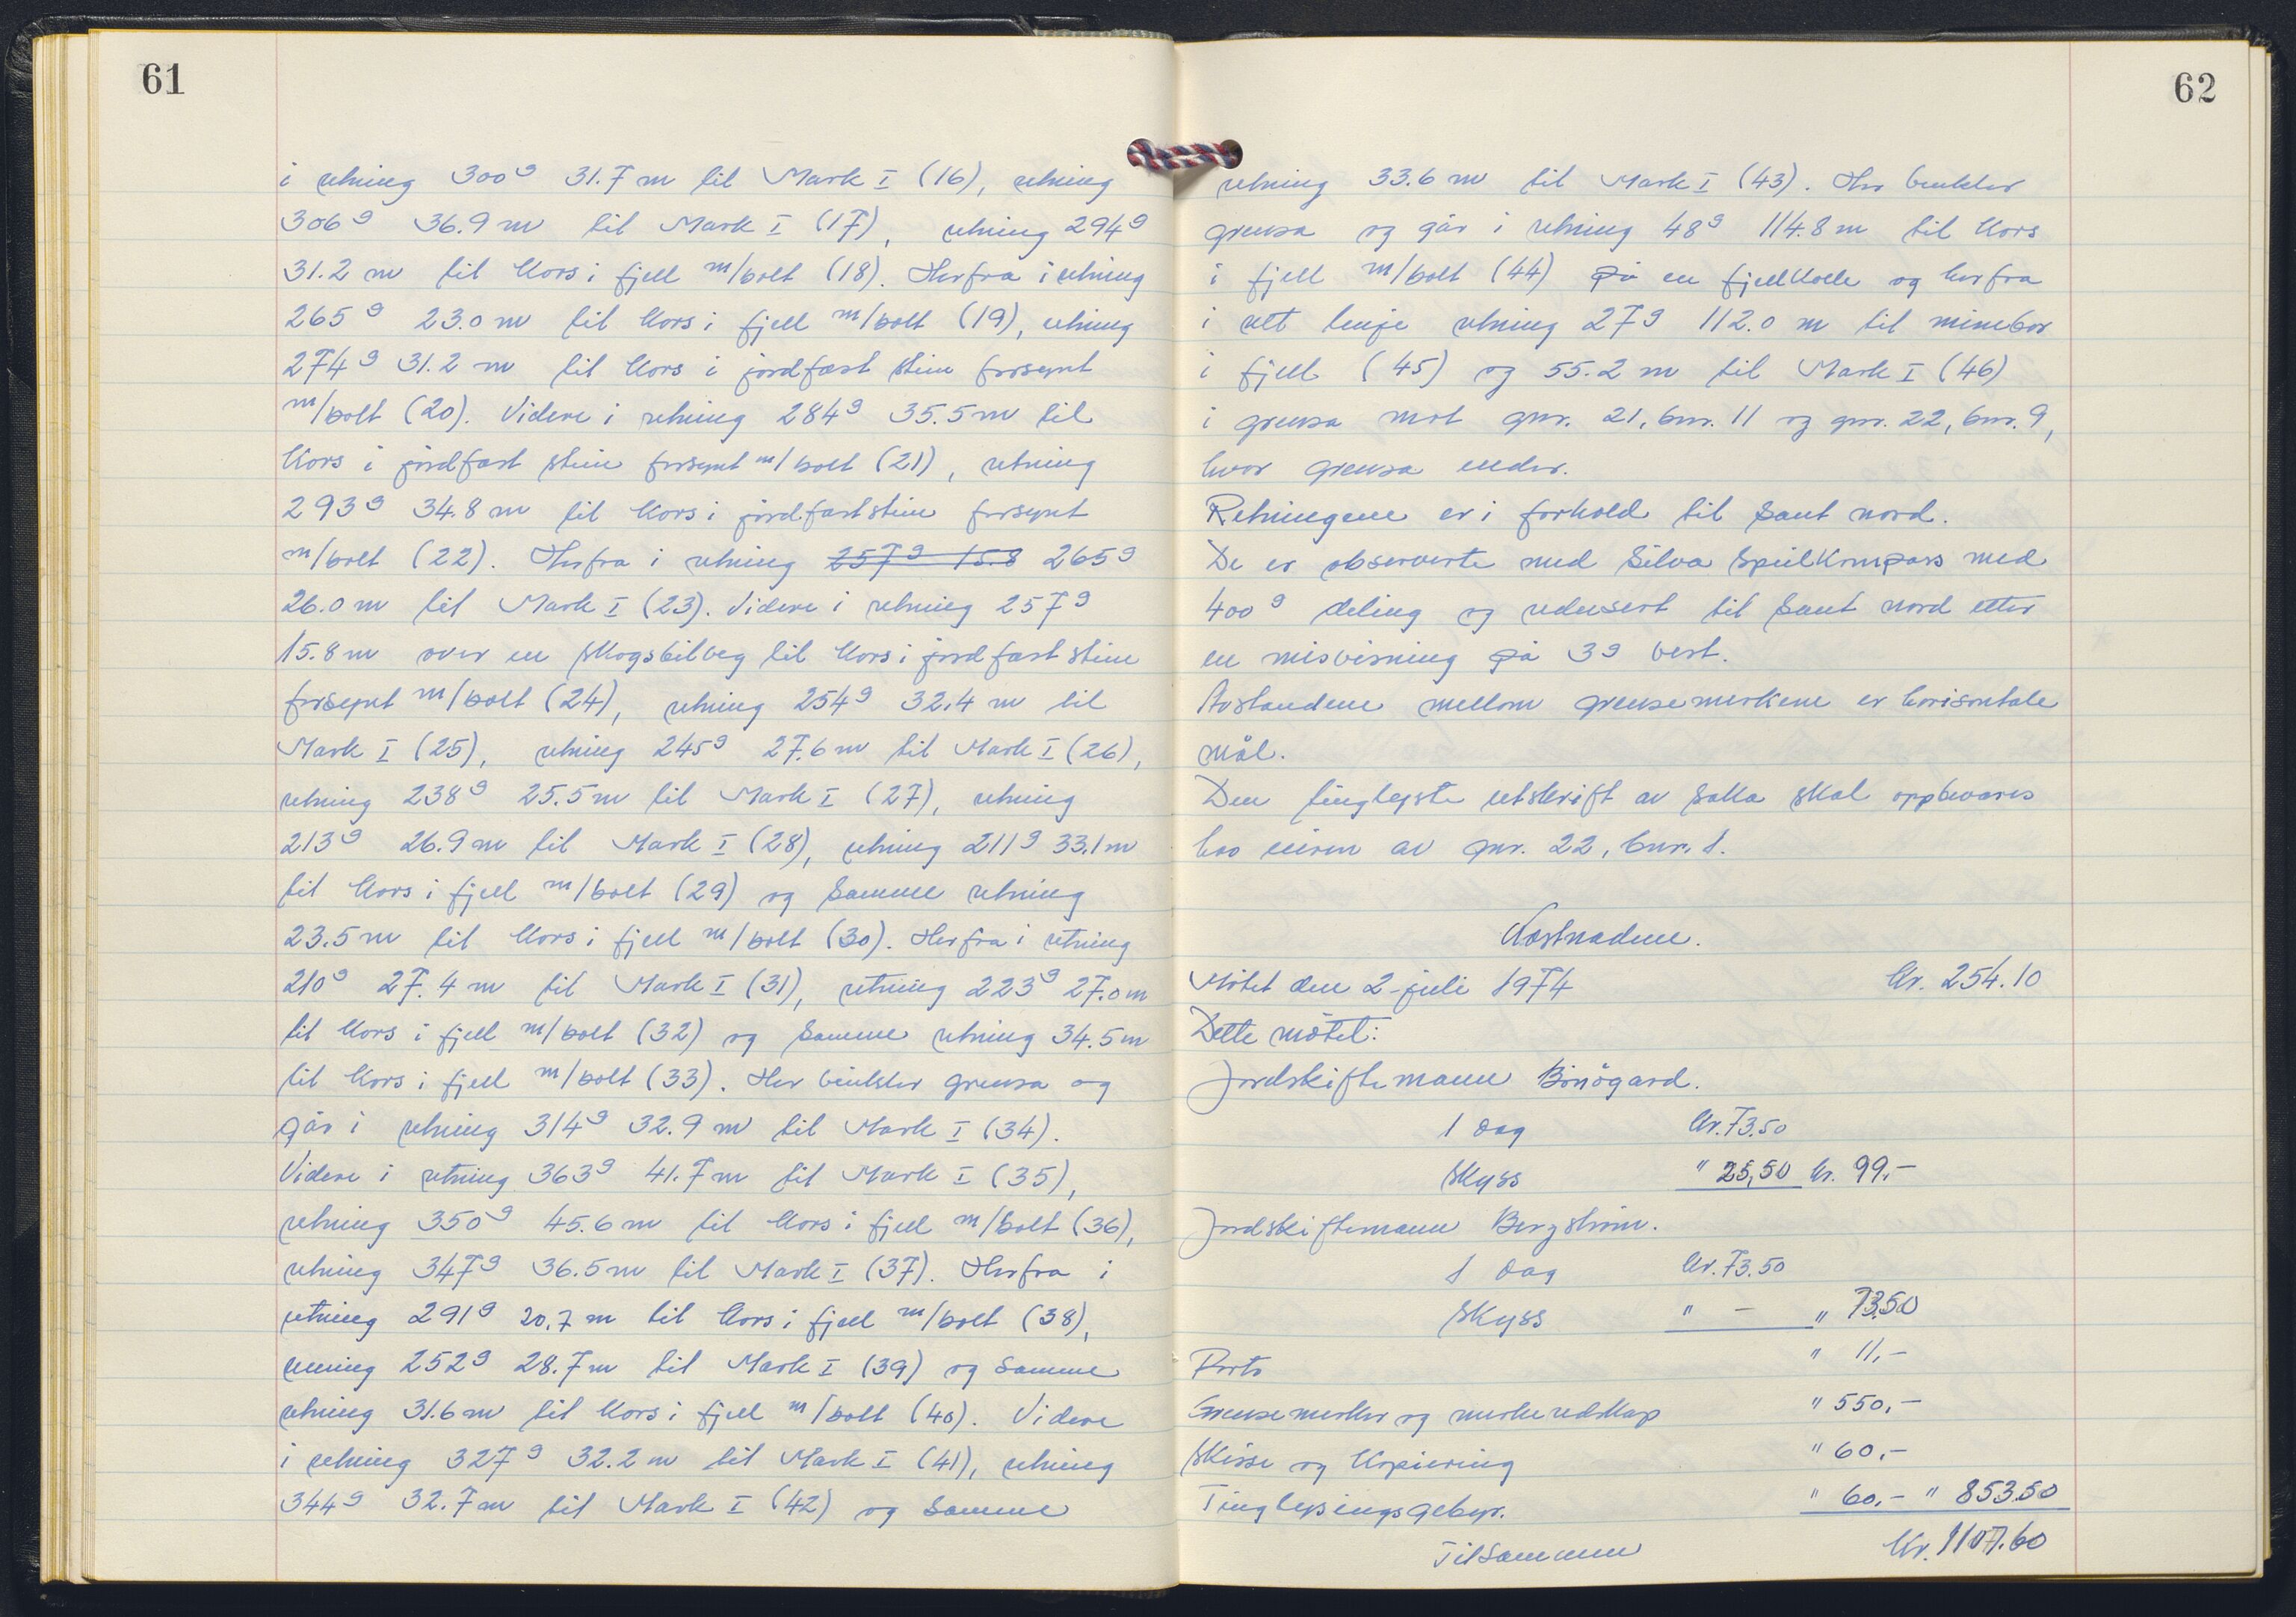 61
i retning 300g 31.7 m til Mark I (16), retning
306g 36.9 m til Mark I (17), retning 294g
31.2 m til kors i fjell m/bolt (18). Herfra i retning
265g 23.0 m til kors i fjell m/bolt (19), retning
274g 31.2 m til kors i jordfast stein forsynt
m/bolt (20). Videre i retning 284g 35.5 m til
kors i jordfast stein forsynt m/bolt (21), retning
293g 34.8 m til kors i jordfast stein forsynt
m/bolt (22). Herfra i retning 257g 15.8 265g
26.0 m til Mark I (23). Videre i retning 257g
15.8 m over en skogsbilveg til kors i jordfast stein
forsynt m/bolt (24), retning 254g 32.4 m til
Mark I (25), retning 245g 27.6 m til Mark I (26),
retning 238g 25.5 m til Mark I (27), retning
213g 26.9 m til Mark I (28), retning 211g 33.1 m
til kors i fjell m/bolt (29) og samme retning
23.5 m til kors i fjell m/bolt (30). Herfra i retning
210g 27.4 m til Mark I (31), retning 223g 27.0 m
til kors i fjell m/bolt (32) og samme retning 34.5 m
til kors i fjell m/bolt (33). Her vinkler grensa og
går i retning 314g 32.9 m til Mark I (34).
Videre i retning 363g 41.7 m til Mark I (35),
retning 350g 45.6 m til kors i fjell m/bolt (36),
retning 347g 36.5 m til Mark I (37). Herfra i
retning 291g 20.7 m til kors i fjell m/bolt (38),
retning 252g 28.7 m til Mark I (39) og samme
retning 31.6 m til kors i fjell m/bolt (40). Videre
i retning 327g 32.2 m til Mark I (41), retning
344g 32.7 m til Mark I (42) og samme
62
retning 33.6 m til Mark I (43). Her vinkler
grensa og går i retning 48g 114.8 m til kors
i fjell m/bolt (44) på en fjellkolle og herfra
i rett linje retning 27g 112.0 m til minebor
i fjell (45) og 55.2 m til Mark I (46)
i grensa mot gnr. 21, bnr. 11 og gnr. 22, bnr. 9,
hvor grensa ender.
Retningene er i forhold til sant nord.
De er observerte med Silva speilkompass med
400g deling og redusert til sant nord etter
en misvisning på 3g vest.
Avstandene mellom grensemerkene er horisontale
mål.
Den tinglyste utskrift av saka skal oppbevares
hos eieren av gnr. 22, bnr. 1.
Kostnadene.
Møtet den 2. juli 1974 kr. 254.10
Dette møtet:
Jordskiftemann Binögard.
1 dag kr. 73.50
Skyss " 25,50 kr. 99.-
Jordskiftemann Bergström.
1 dag kr. 73.50
Skyss " - " 73.50
Porto " 11.-
Grensemerker og merkeredskap " 550.-
Skisse og kopiering " 60.-
Tinglysingsgebyr. " 60.- " 853.50
Tilsammen kr. 1107.60